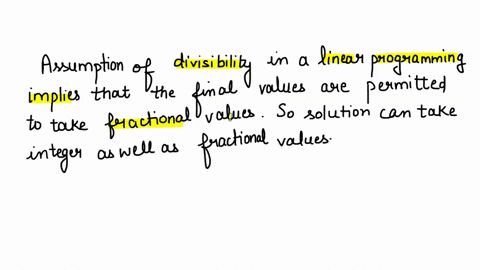 Assumption of divisibility in a linear programming
implies that the final values are permitted
to take fractional values. So solution can take
integer as well as fractional values.